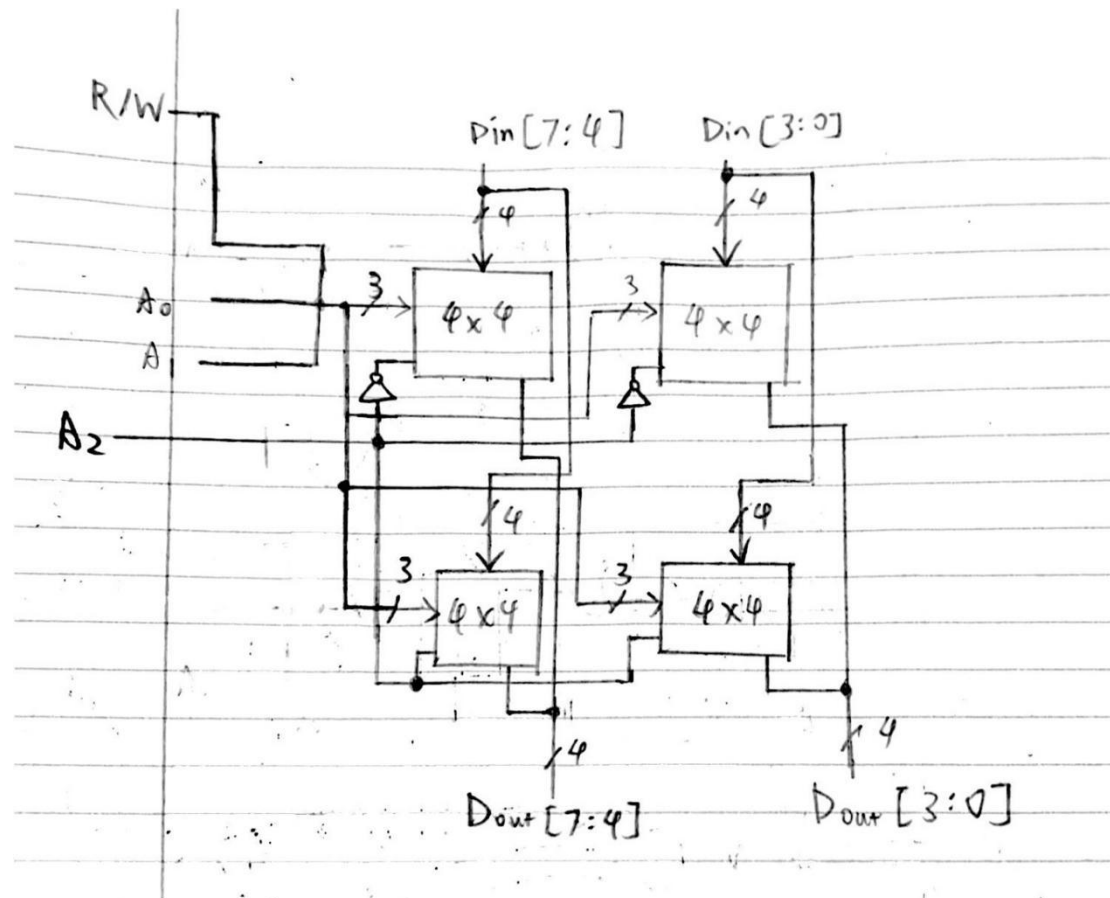 R/W
Din[7:4]
Din[3:0]
4
4
A0
3
4x4
3
4x4
A
A2
4
4
3
4x4
3
4x4
4
4
Dout[7:4]
Dout[3:0]